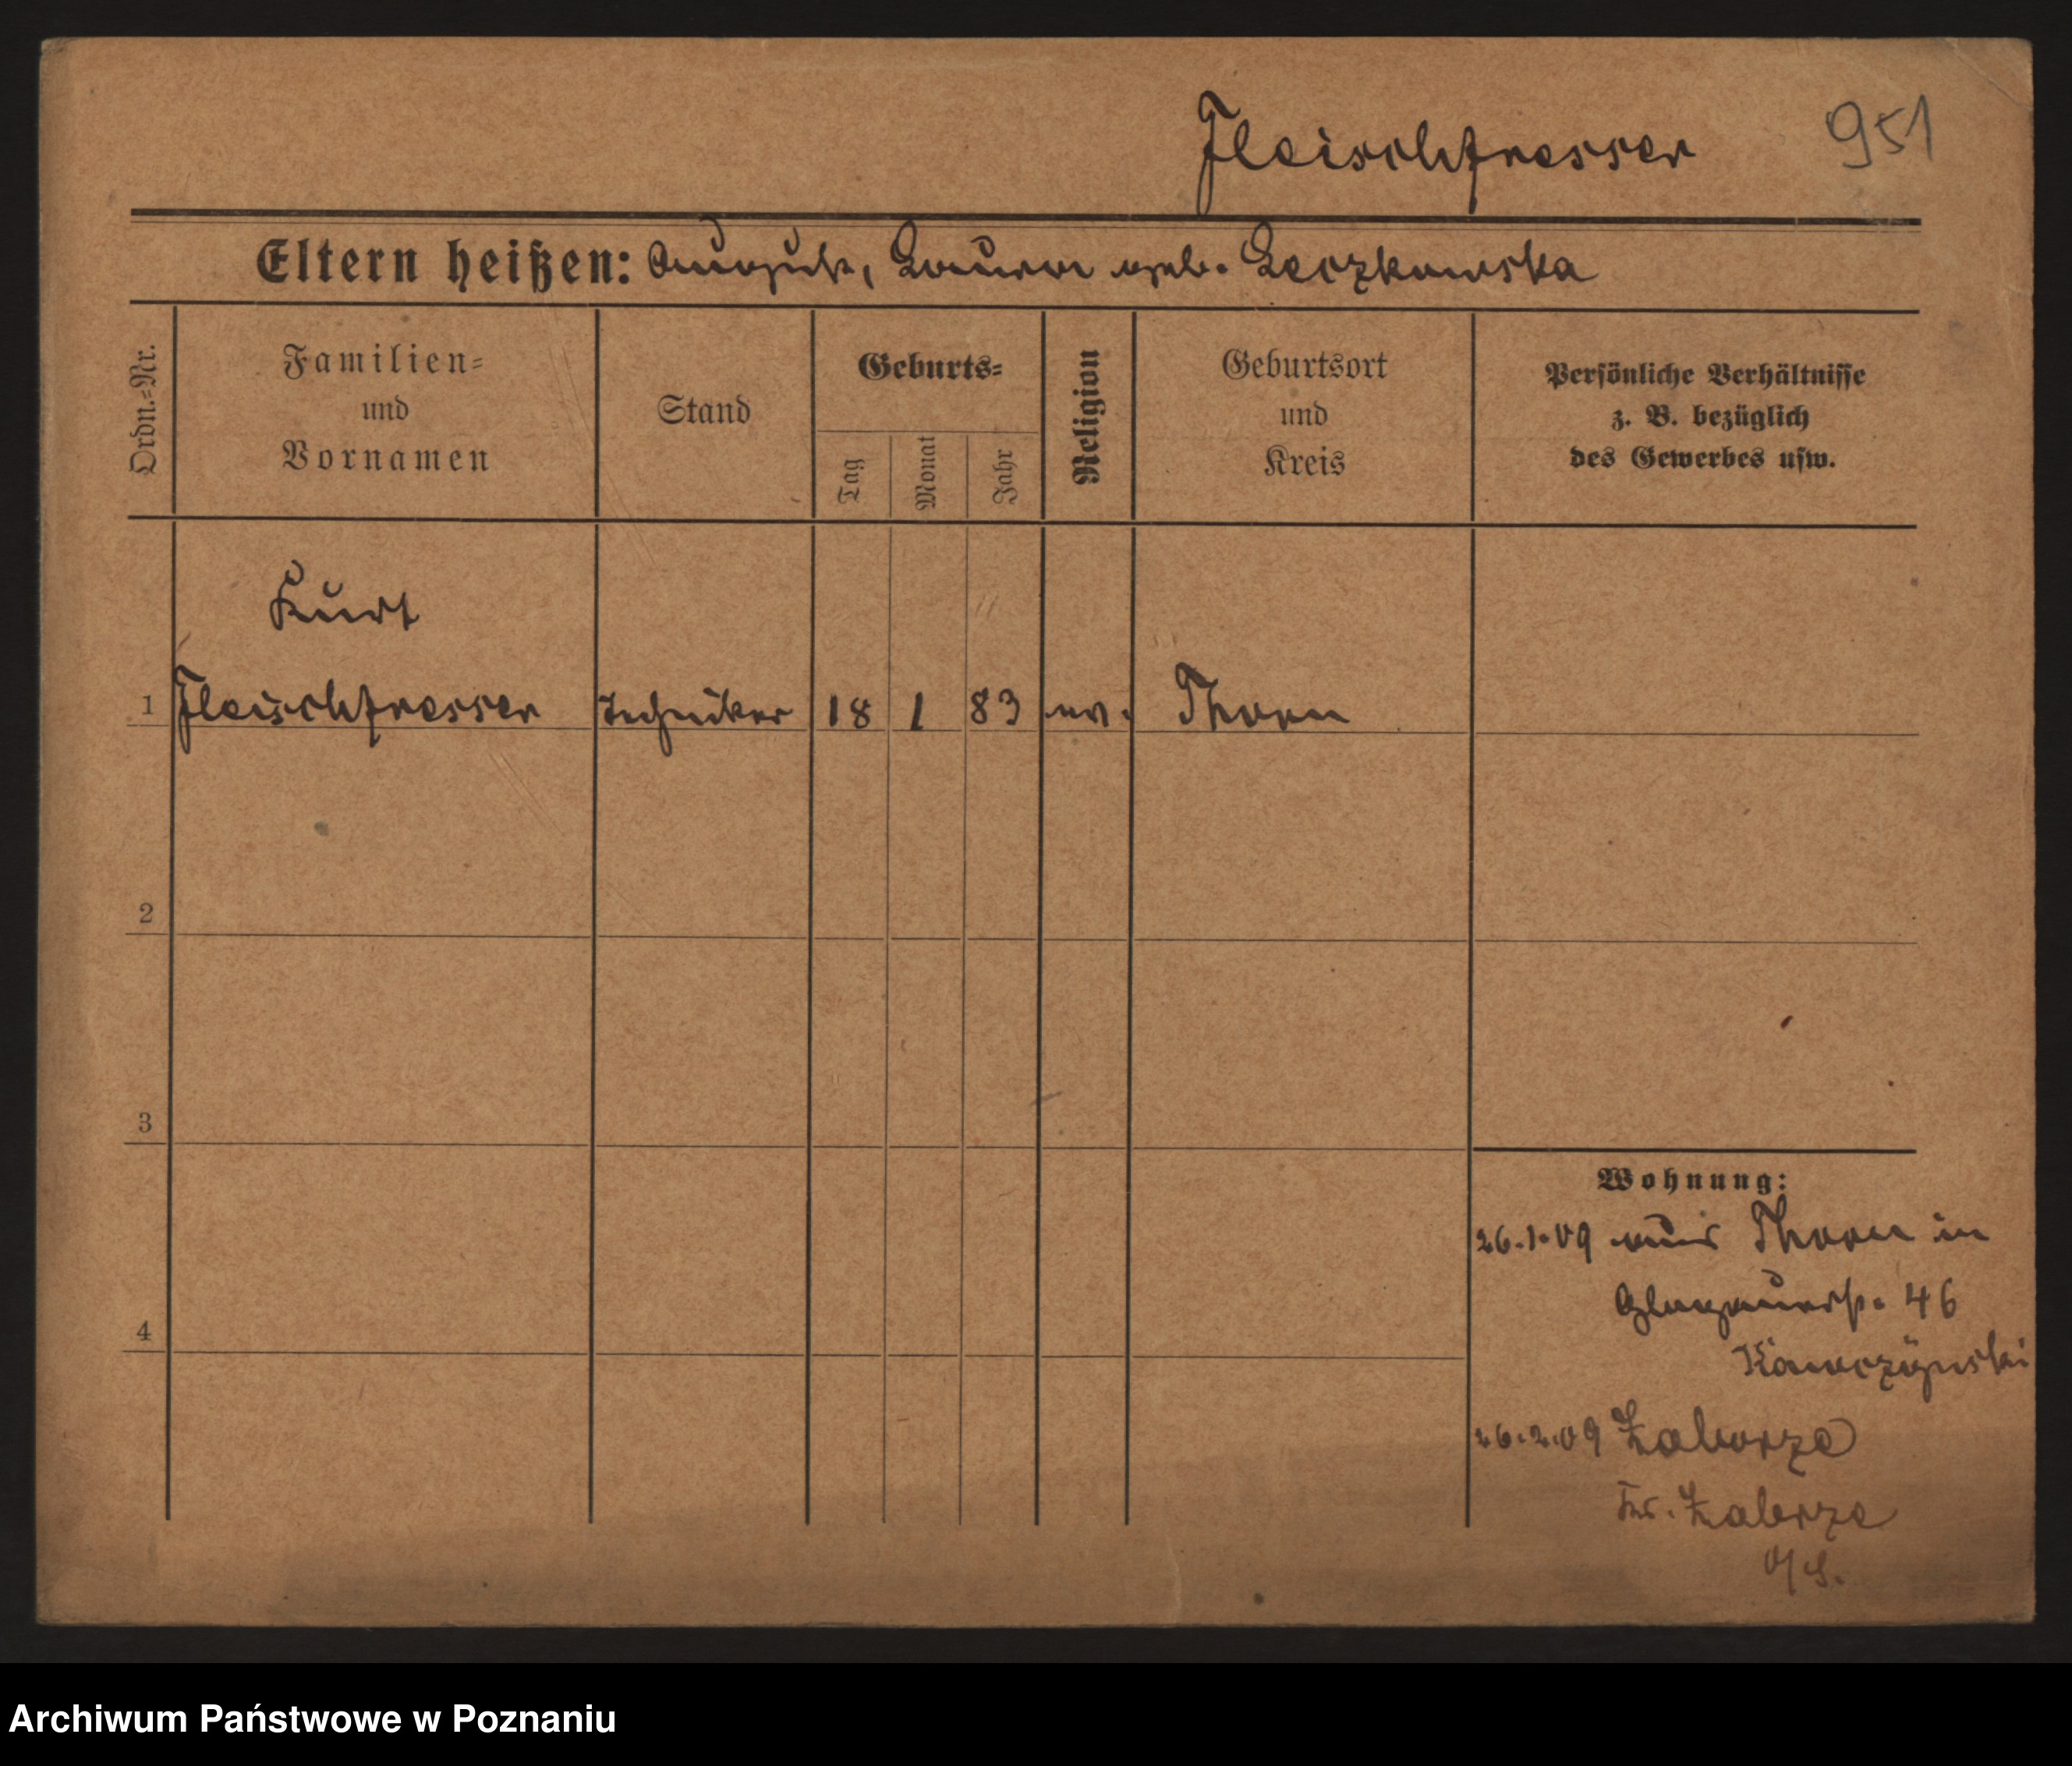 Fleischfresser 951
Eltern heißen: August, Laura geb. Leczkowska
Ordn.=Nr.
Familien=
und
Vornamen
Stand
Geburts=
Tag
Monat
Jahr
Religion
Geburtsort
und
Kreis
Persönliche Verhältnisse
z. B. bezüglich
des Gewerbes usw.
Kurt
1 Fleischfresser Techniker 18 1 83 ev. Thorn
2
3
4
Wohnung:
26.1.09 aus Thorn in
Glogauerstr. 46
Kawczÿnski
26.2.09 Zaborze
Kr. Zabrze
O/S.
Archiwum Państwowe w Poznaniu